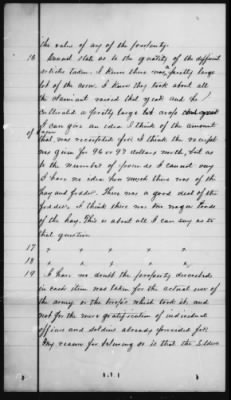 the value of any of the property
16 Cannot state as to the quantity of the different
articles taken. I know there was a pretty large
lot of the corn. I know they took about all
the claimant raised that year and he
cultivated a pretty large lot crops
I can give an idea I think of the amount
of corn that was receipted for. I think the receipt
was given for 96 or 97 dollars worth, but as
to the number of pounds I cannot say
I have no idea how much there was of the
hay and fodder. There was a good deal of the
fodder. I think there was two wagon loads
of the hay. This is about all I can say as to
that question
17 " " " " "
18 " " " " "
19 I have no doubt the property described
in each item was taken for the actual use of
the army or the troops which took it, and
not for the mere gratification of individual
officers and soldiers already provided for.
My reason for believing so is that the soldiers